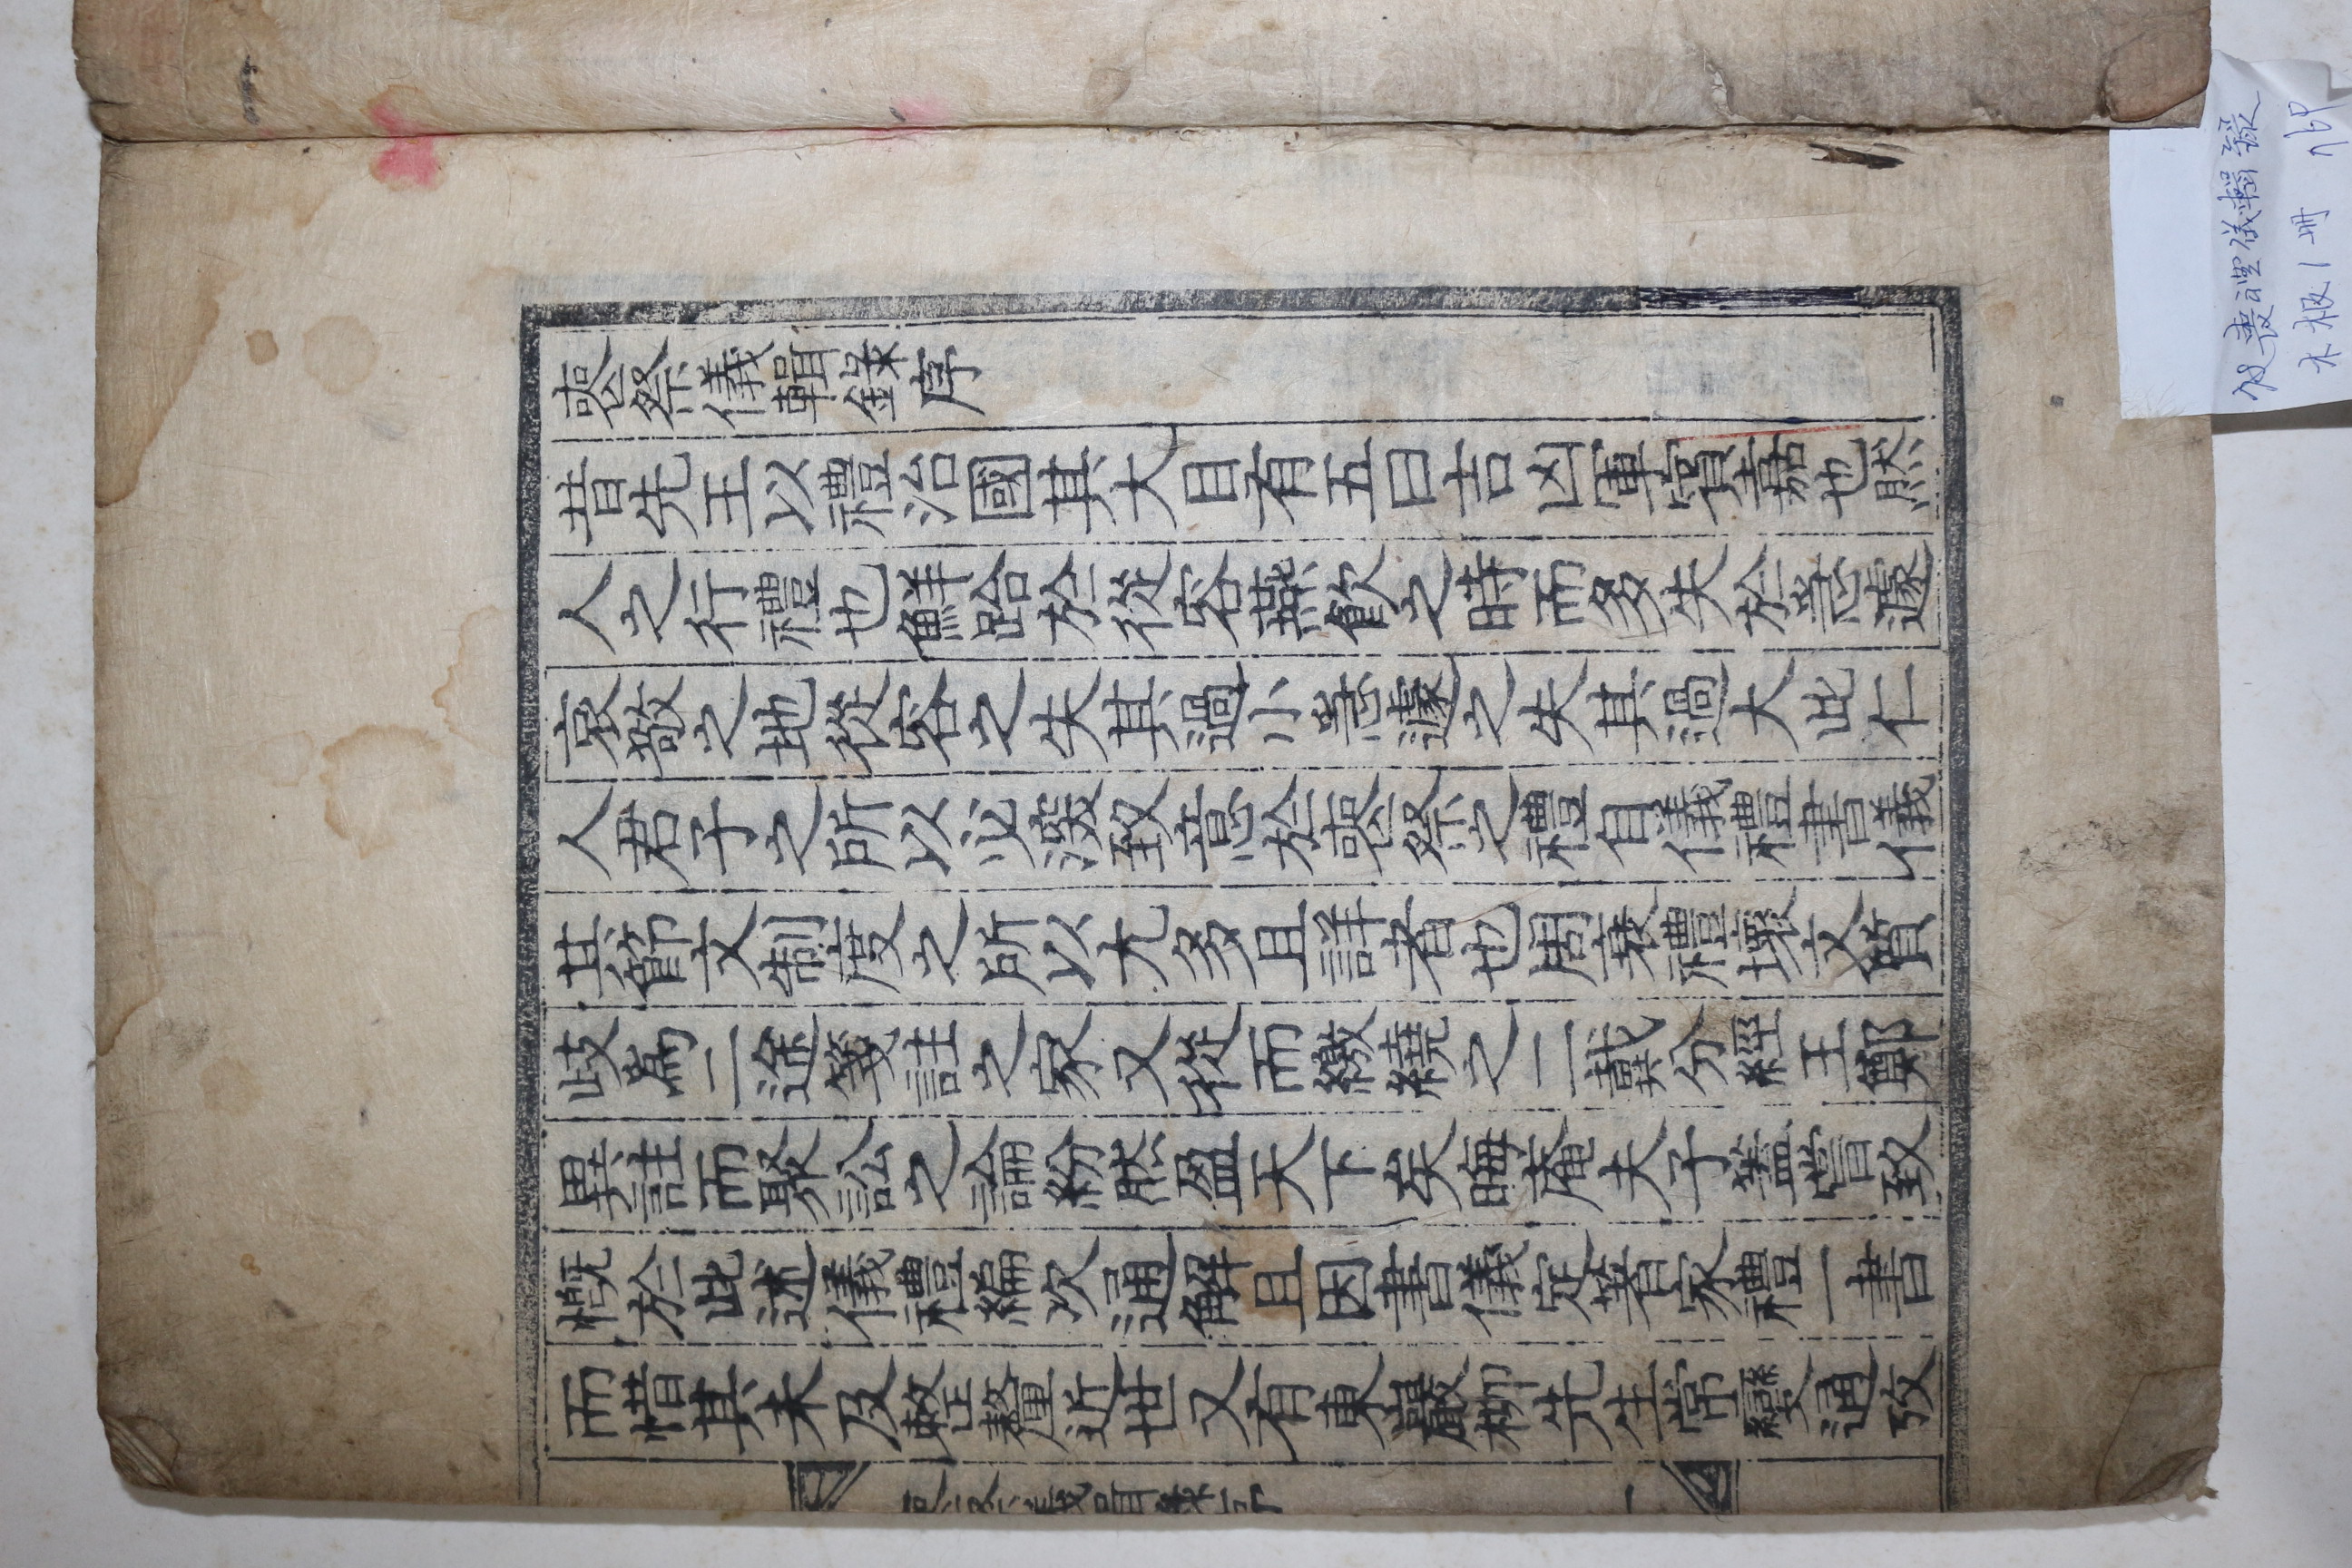 喪祭儀輯錄序
昔先王以禮治國其大目有五曰吉凶軍賓嘉也然
人之行禮也鮮跲於從容燕飮之時而多失於急遽
哀敬之地從容之失其過小急遽之失其過大此仁
人君子之所以必深致意於喪祭之禮自儀禮書儀
其節文制度之所以尤多且詳者也周衰禮壞文質
歧爲二途箋註之家又從而繳繞之二戴分經王鄭
異註而聚訟之論紛然盈天下矣晦庵夫子蓋嘗致
慨於此述儀禮編次通解且因書儀定著家禮一書
而惜其未及整釐近世又有東巖柳先生常變通攷
喪禮儀輯錄
木板1冊